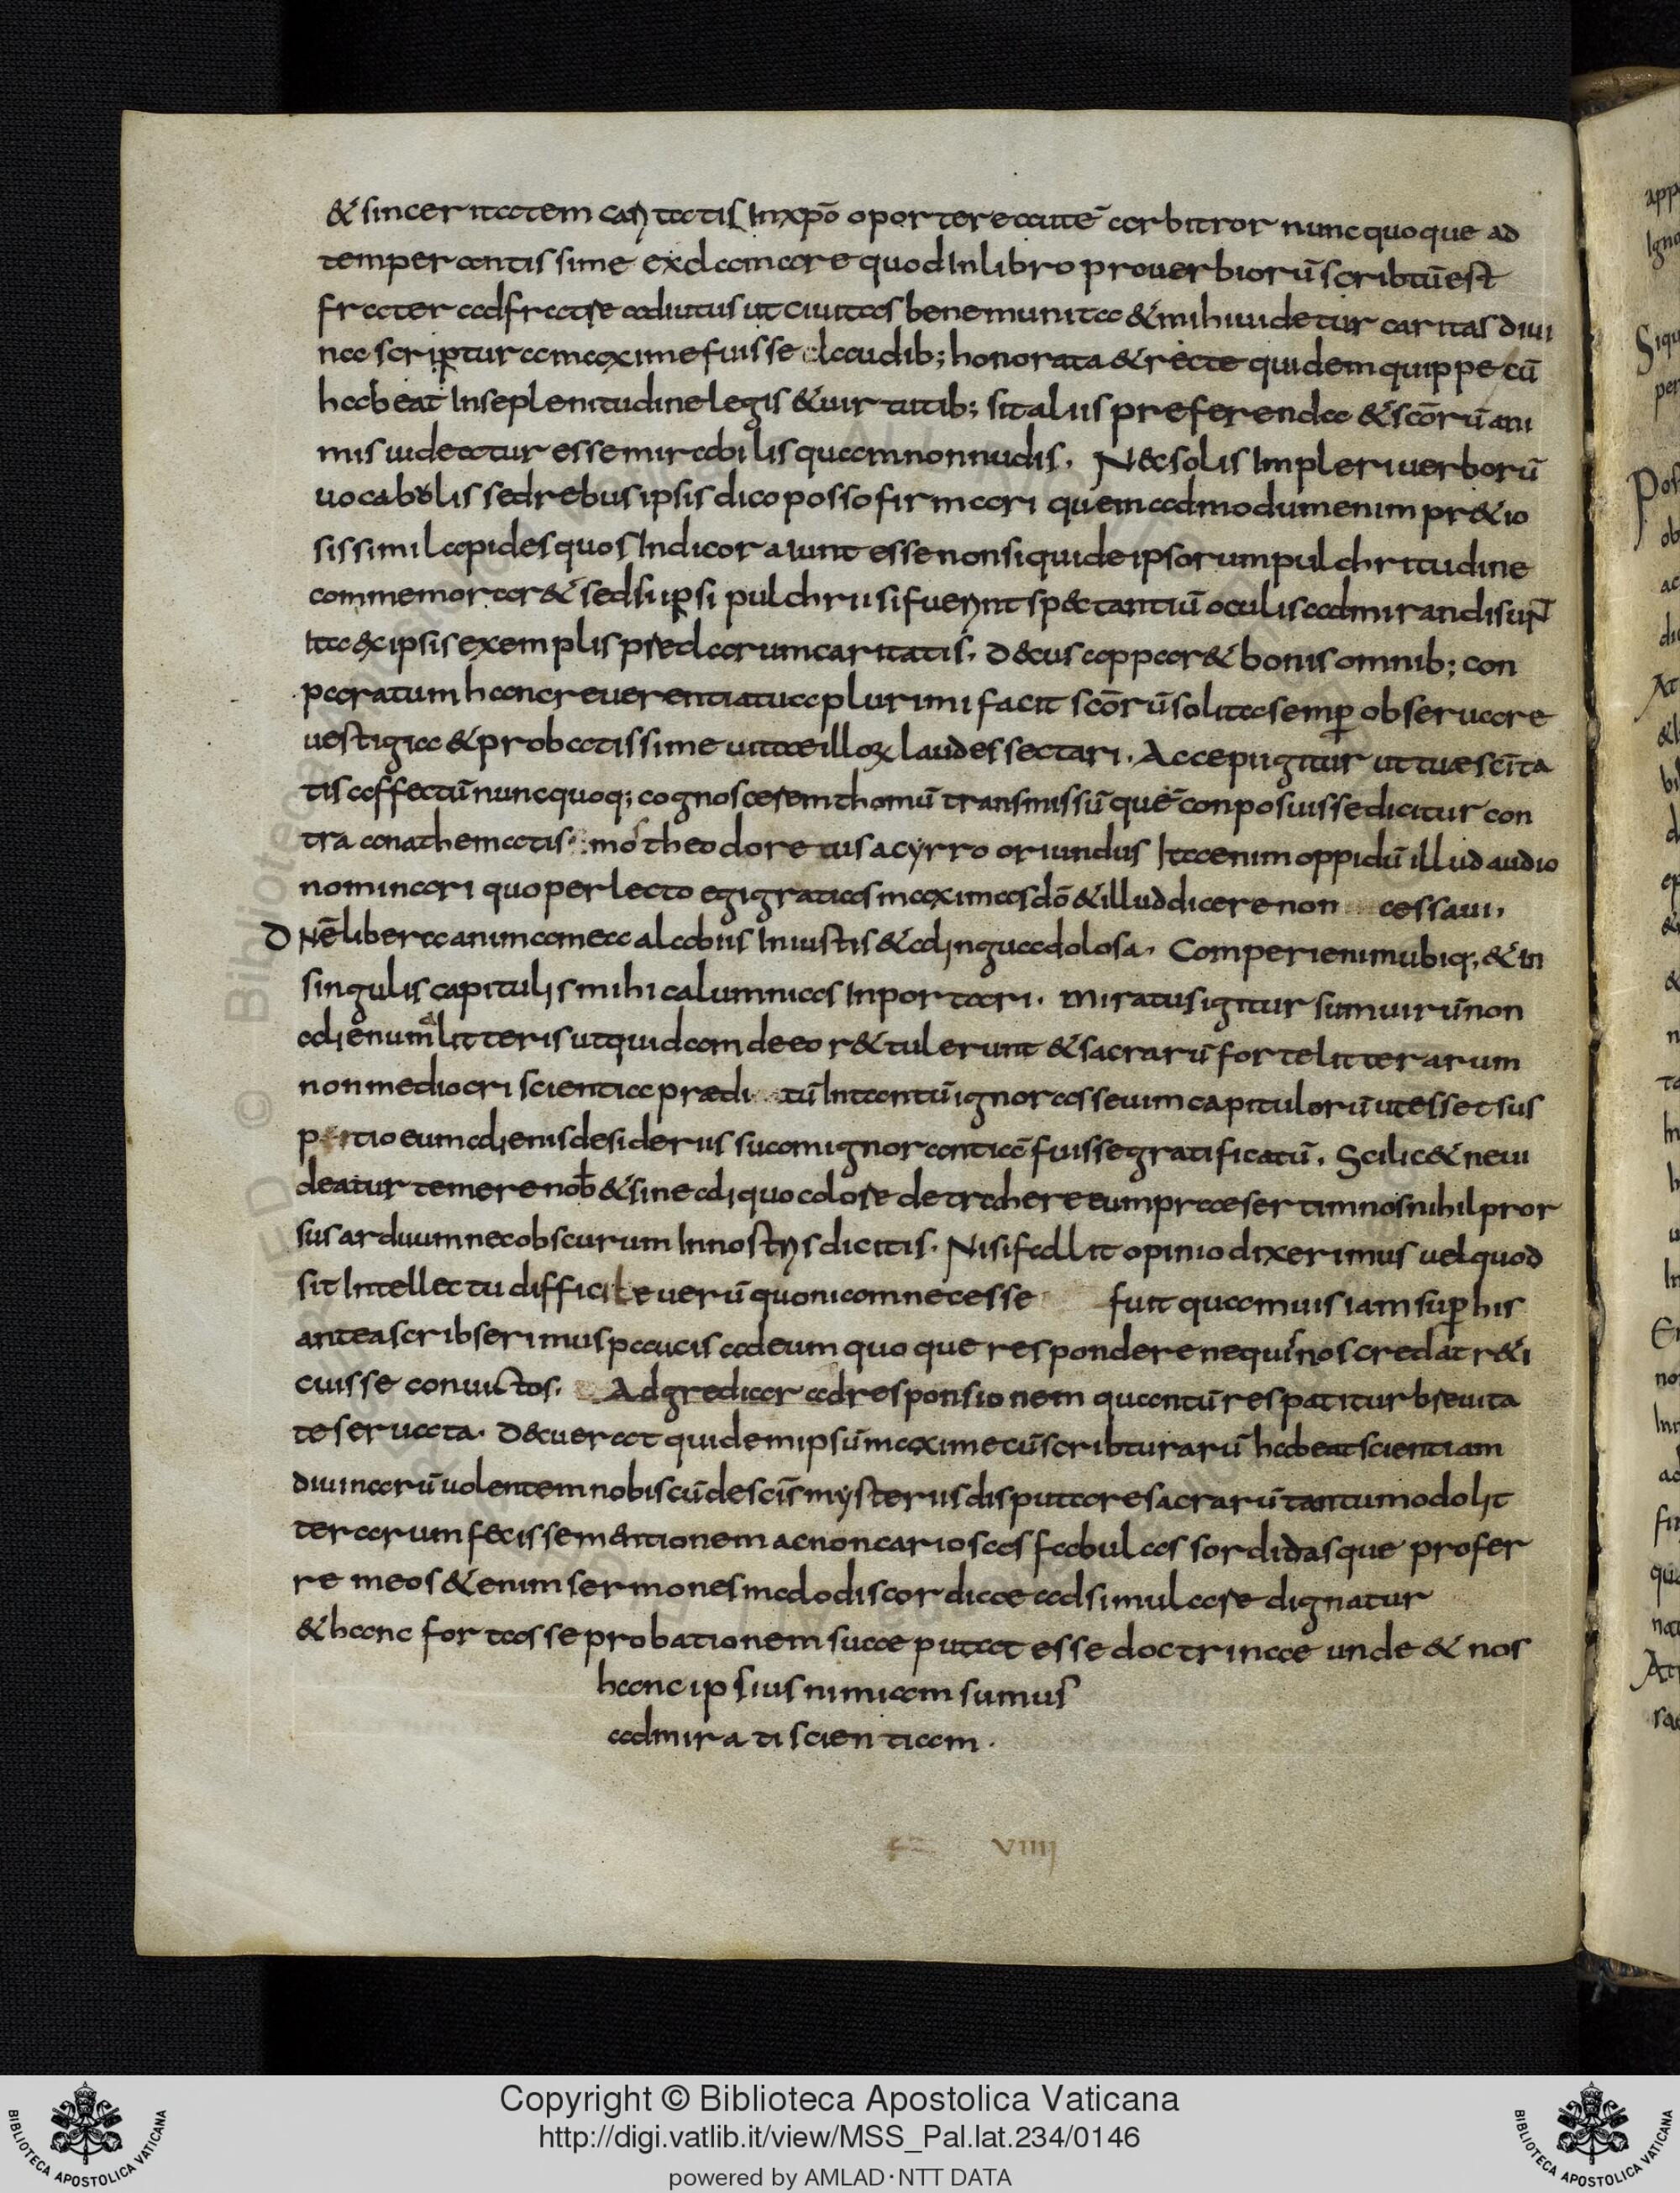 & sinceritatem caritatis In xpō oportere aute᷃ arbitror nunc quoque ad
temperantissime exclamare quod In libro prouerbiorū scribtū est
frater ad fratre adiutus ut ciuitas bene munita & mihi uidetur caritas diui
na scriptura maxime fuisse laudib; honorata & recte quidem quippe cū
habeat In se plenitudine legis & uirtutib; sit aliis preferenda & scōrū ani
mis uideatur esse mirabilis quam non nudis. Nec solis Impleri uerborū
uocabolis sed rebus ipsis dico posso firmari quem admodum enim pr&io
sissimi lapides quos Indicor aiunt esse non siquide ipsorum pulchritudine
commemorar& sed si ipsi pulchrii si fuerint sp&tantiū oculis admirandi sunt
Ita & ipsis exemplis predarum caritatis. Decus appar& bonis omnib; con
paratum hanc reuerentia tua plurimi facit scōrū solita semp obseruare
uestigia & probatissime uitae illorum laudes sectari. Accepi igitur ut tuae scīta
tis affectū nunc quoq; cognoscerem thomū transmissū quē conposuisse dicitur con
tra anathematis mōs theodoretus a cyrro oriundus Ita enim oppidū illud audio
nominari quo perlecto egi gratias maximas dō & illud dicere non cessaui.
DNē libera anima mea a labiis Iniustis & a lingua dolosa. Comperi enim ubiq; & In
singulis capitulis mihi calumnias Inportari. miratus igitur sum uirū non
alienum a litteris ut quidam de eo r&tulerunt & sacrarū forte litterarum
non mediocri scientia praeditū Intantū ignorasse uim capitulorū ut esset sus
pitio eum alienis desideriis suam ignorantiā fuisse gratificatū. Scilic& ne ui
deatur temere nob & sine aliquo colore detrahere eum praesertim nos nihil pror
sus arduum nec obscurum In nostris dicitis. Nisi fallit opinio dixerimus uel quod
sit Intellectu difficile uerū quoniam necesse fuit quamuis iam sup his
antea scribserimus paucis ad eum quoque respondere nequis nos credat r&i
cuisse conuictos. Adgrediar ad responsionem quantū res patitur breuita
te seruata. Decuerat quidem ipsū maxime cū scribturarū habeat scientiam
diuinarū uolentem nobiscū de scīs mysteriis disputare sacrarū tantumodo lit
terarum fecisse mentionem ac non cariosas fabulas sordidasque profer
re meos &enim sermones malo discordiae adsimulare dignatur
& hanc fortasse probationem suae putat esse doctrinae unde & nos
hanc ipsius nimiam sumus
admirati scientiam.
VIIII
Copyright © Biblioteca Apostolica Vaticana
http://digi.vatlib.it/view/MSS_Pal.lat.234/0146
powered by AMLAD·NTT DATA
BIBLIOTECA APOSTOLICA VATICANA
BIBLIOTECA APOSTOLICA VATICANA